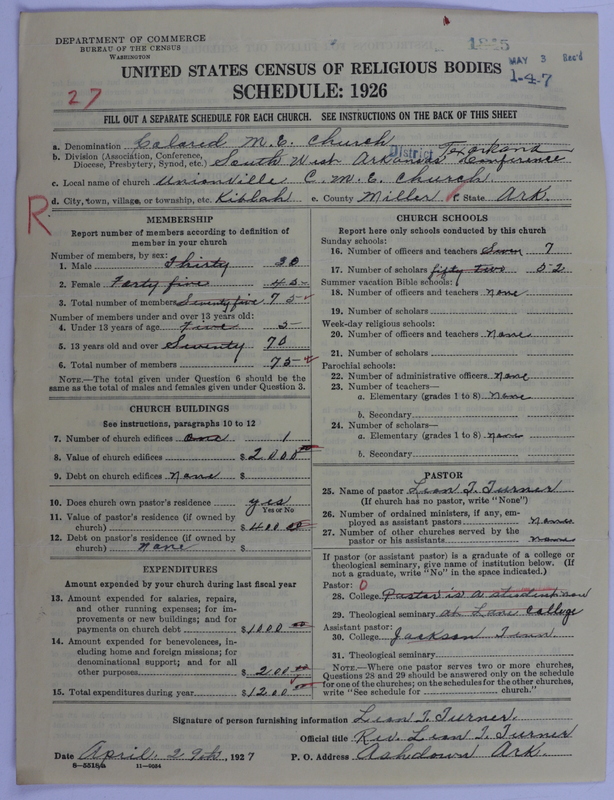 DEPARTMENT OF COMMERCE
BUREAU OF THE CENSUS
WASHINGTON
1825
MAY 3 Rec'd
1-4-7
27
UNITED STATES CENSUS OF RELIGIOUS BODIES
SCHEDULE: 1926
FILL OUT A SEPARATE SCHEDULE FOR EACH CHURCH. SEE INSTRUCTIONS ON THE BACK OF THIS SHEET
a. Denomination Colored M. E. Church
b. Division (Association, Conference, Diocese, Presbytery, Synod, etc.) South West Arkansas District Texarkana Conference
c. Local name of church Unionville C. M. E. Church.
d. City, town, village, or township, etc. Kiblah e. County Miller f. State Ark.
R
MEMBERSHIP
Report number of members according to definition of
member in your church
Number of members, by sex:
1. Male Thirty 30
2. Female Forty five 45
3. Total number of members Seventy five 75
Number of members under and over 13 years old:
4. Under 13 years of age five 5
5. 13 years old and over Seventy 70
6. Total number of members 75
NOTE.—The total given under Question 6 should be the
same as the total of males and females given under Question 3.
CHURCH BUILDINGS
See instructions, paragraphs 10 to 12
7. Number of church edifices One 1
8. Value of church edifices $2000.00
9. Debt on church edifices None $
10. Does church own pastor's residence yes
Yes or No
11. Value of pastor's residence (if owned by
church) $400.00
12. Debt on pastor's residence (if owned by
church) None $
EXPENDITURES
Amount expended by your church during last fiscal year
13. Amount expended for salaries, repairs,
and other running expenses; for im-
provements or new buildings; and for
payments on church debt $1000.00
14. Amount expended for benevolences, in-
cluding home and foreign missions; for
denominational support; and for all
other purposes $200.00
15. Total expenditures during year $1200
CHURCH SCHOOLS
Report here only schools conducted by this church
Sunday schools:
16. Number of officers and teachers Seven 7
17. Number of scholars fifty two 52
Summer vacation Bible schools:
18. Number of officers and teachers None
19. Number of scholars
Week-day religious schools:
20. Number of officers and teachers None
21. Number of scholars
Parochial schools:
22. Number of administrative officers None
23. Number of teachers—
a. Elementary (grades 1 to 8) None
b. Secondary
24. Number of scholars—
a. Elementary (grades 1 to 8) None
b. Secondary
PASTOR
25. Name of pastor Leon T. Turner
(If church has no pastor, write "None")
26. Number of ordained ministers, if any, em-
ployed as assistant pastors None
27. Number of other churches served by the
pastor or his assistants None
If pastor (or assistant pastor) is a graduate of a college or
theological seminary, give name of institution below. (If
not a graduate, write "No" in the space indicated.)
Pastor: 0
28. College Pastor is a student now
29. Theological seminary at Lane College
Assistant pastor:
30. College Jackson Tenn
31. Theological seminary
NOTE.—Where one pastor serves two or more churches,
Questions 28 and 29 should be answered only on the schedule
for one of the churches; on the schedules for the other churches,
write "See schedule for ______ church."
Signature of person furnishing information Leon T. Turner.
Official title Rev. Leon T. Turner
Date April 29th, 1927 P. O. Address Ashdown Ark.
8-5518a 11-9084